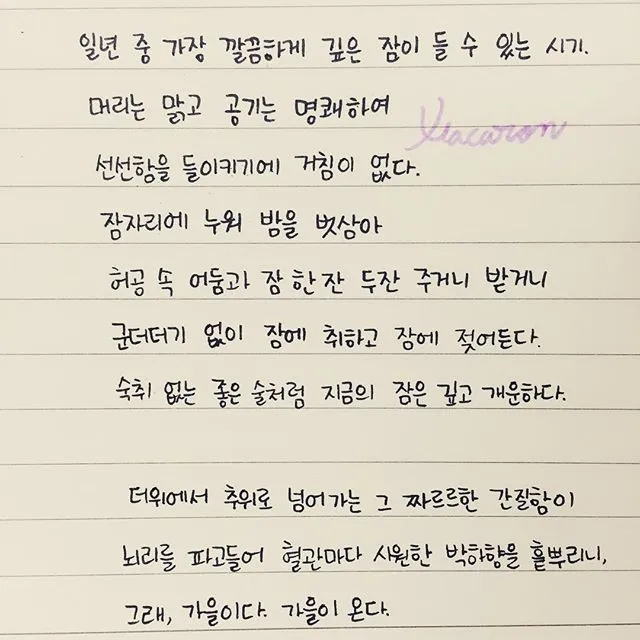 일년 중 가장 깔끔하게 깊은 잠이 들 수 있는 시기.
머리는 맑고 공기는 명쾌하여
선선함을 들이키기에 거침이 없다.
잠자리에 누워 밤을 벗삼아
허공 속 어둠과 잠 한잔 두잔 주거니 받거니
군더더기 없이 잠에 취하고 잠에 젖어든다.
숙취 없는 좋은 술처럼 지금의 잠은 깊고 개운하다.
더위에서 추위로 넘어가는 그 짜르르한 간질함이
뇌리를 파고들어 혈관마다 시원한 박하향을 흩뿌리니,
그래, 가을이다. 가을이 온다.